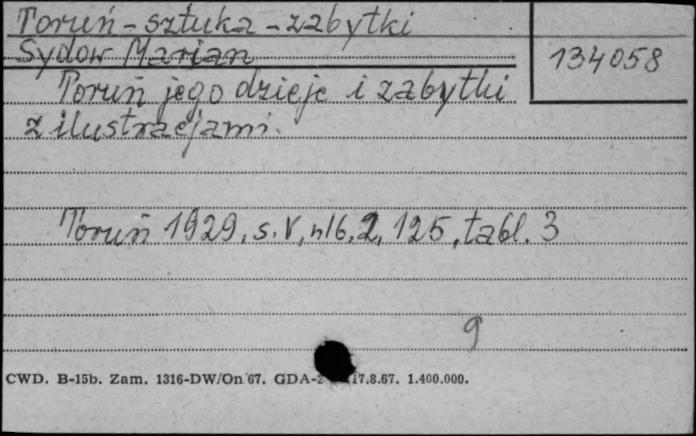 Toruń - sztuka - zabytki
Sydow Marian
134058
Toruń jego dzieje i zabytki
z ilustracjami.
Toruń 1929, s. V, nlb, 2, 125, tabl. 3
9
CWD. B-15b. Zam. 1316-DW/On 67. GDA-2 17.8.67. 1.400.000.